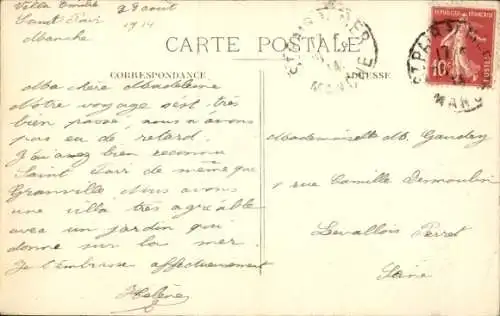 Villa Emilie 2 août
Saint Pair 1914
Manche
CARTE POSTALE
CORRESPONDANCE
ADRESSE
REPUBLIQUE FRANÇAISE
10c
POSTES
ST PAIR
MANCHE
Ma chère Madeleine
Notre voyage s'est très
bien passé, nous n'avons
pas eu de retard.
J'ai assez bien reconnu
Saint Pair de même que
Granville Nous avons
une villa très agréable
avec un jardin qui
donne sur la mer.
Je t'embrasse affectueusement
Helène
Mademoiselle M. Gaudey
1 rue Camille Desmoulin
Levallois Perret
Seine